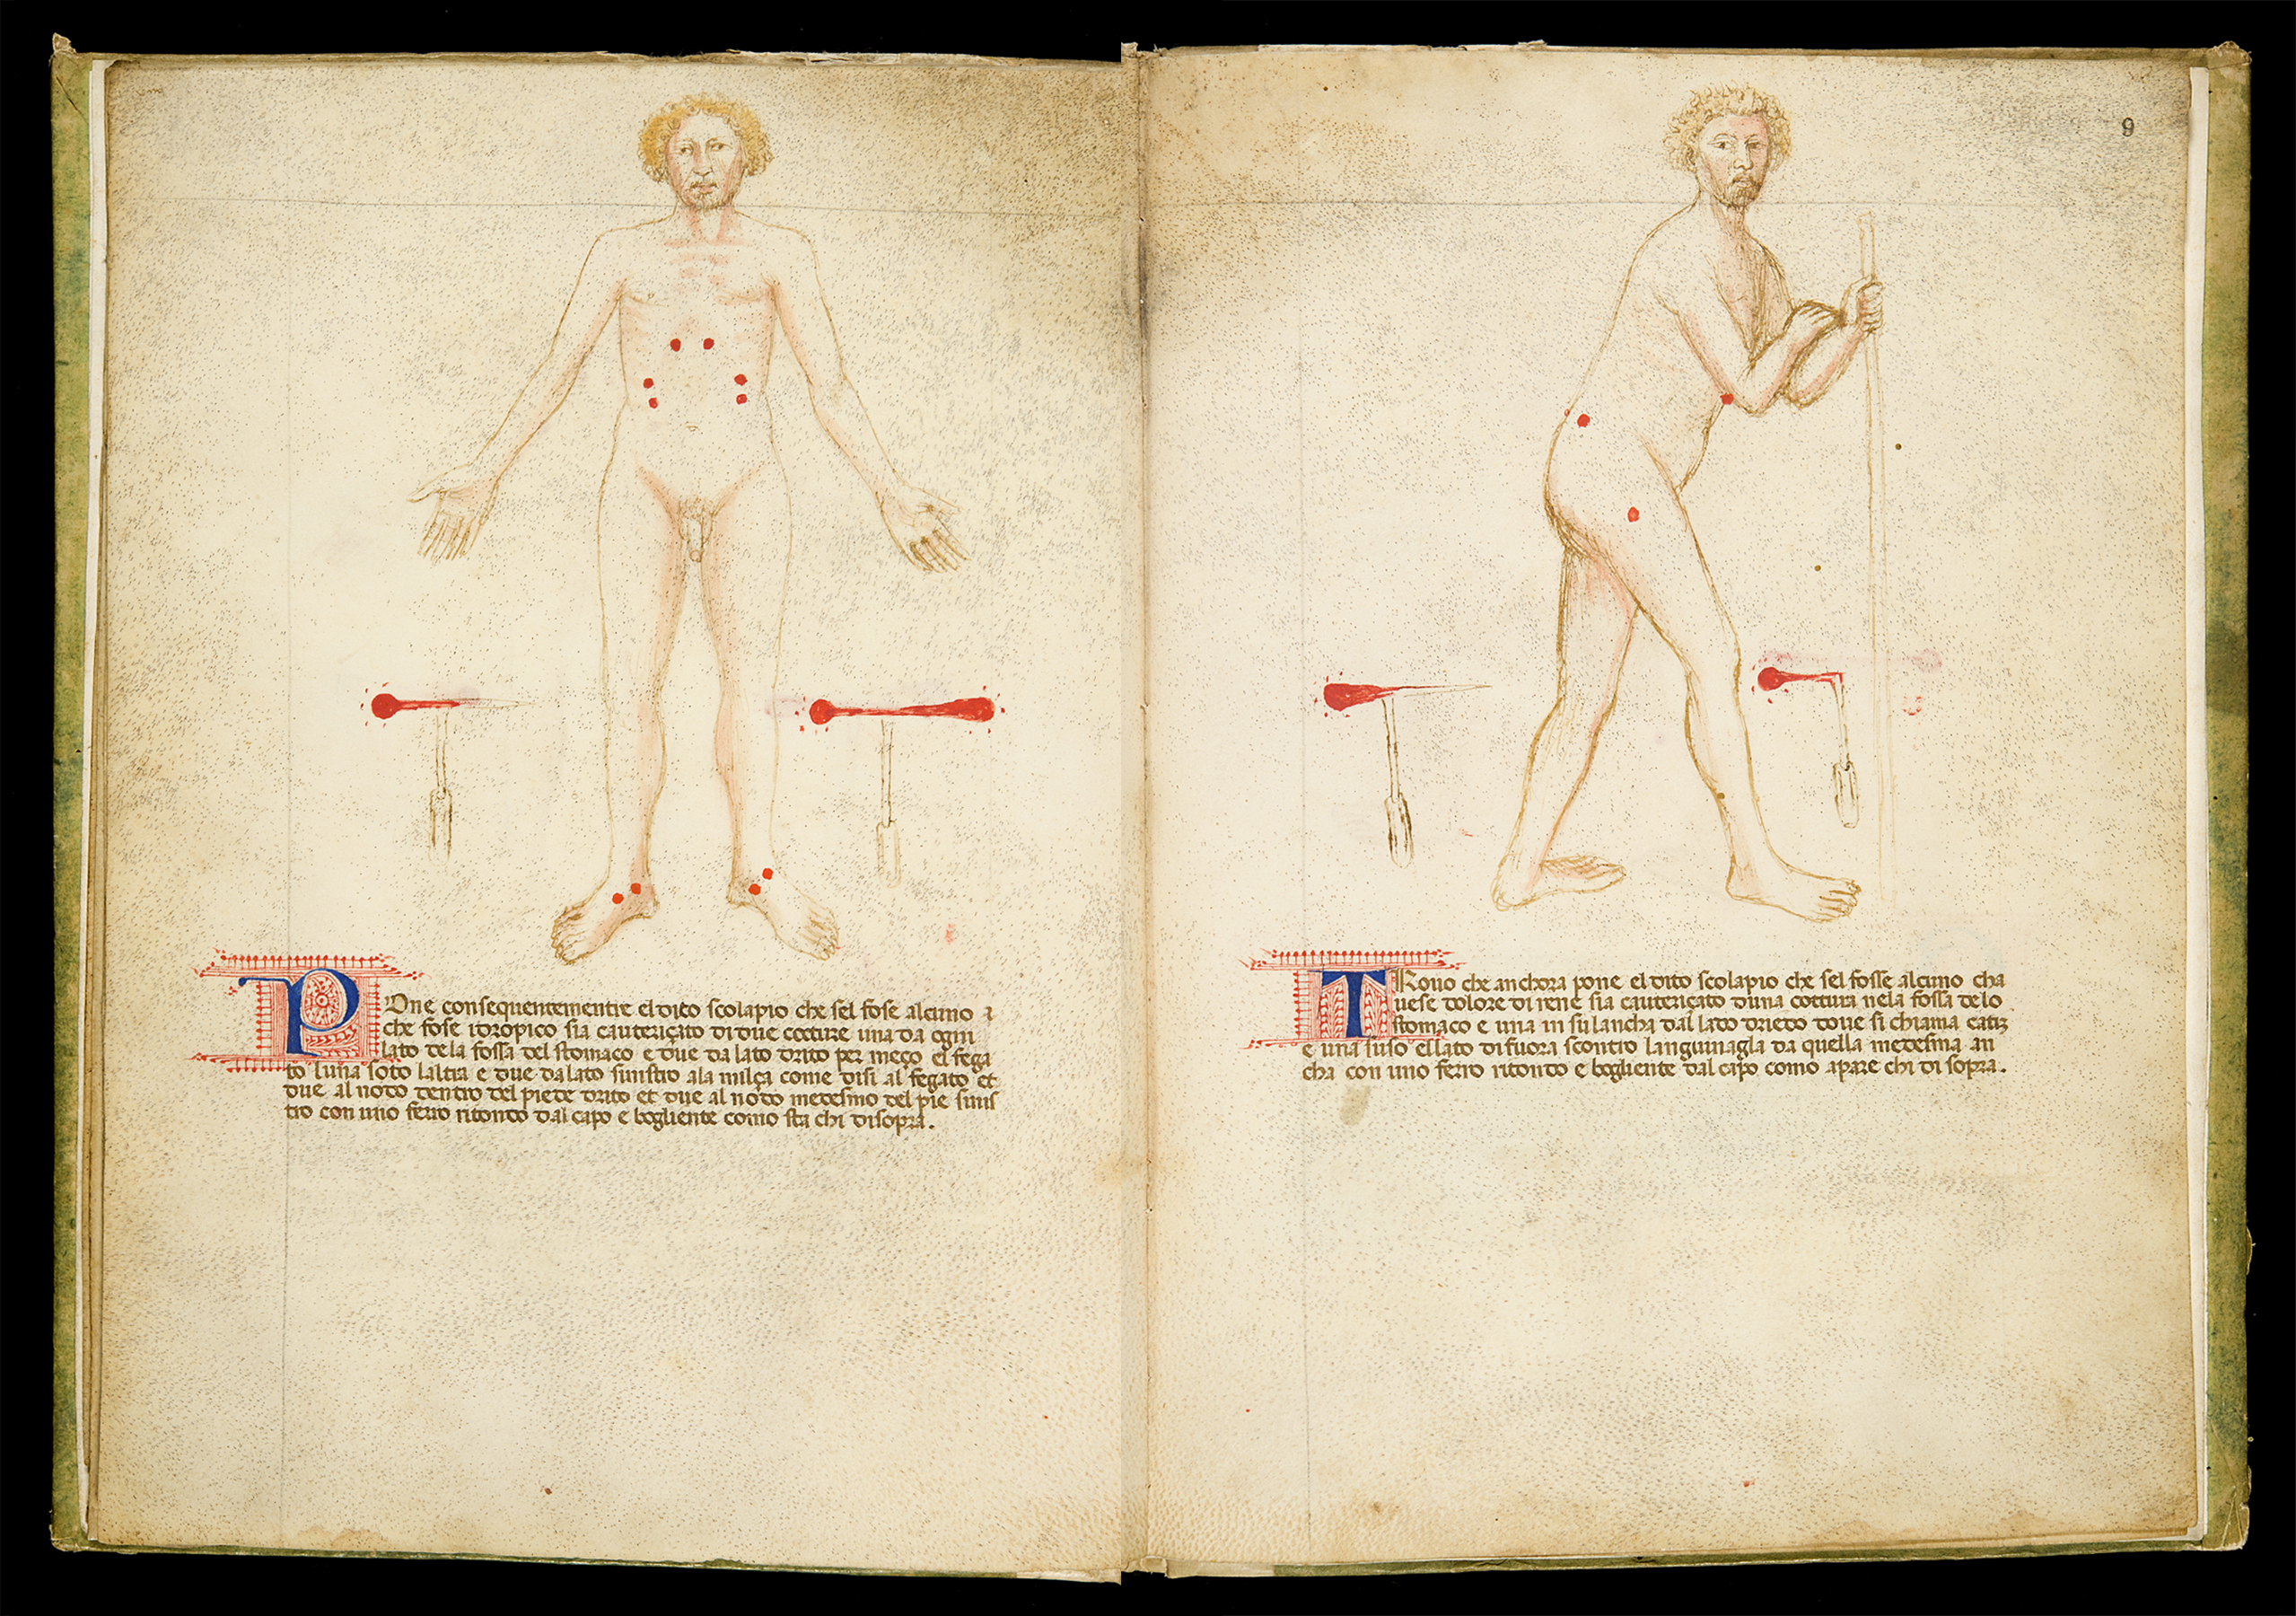 POne consequentemente el dito scolapio che sel fose alcuno
che fose idropico sia cauteriçato di due cotture una da ogni
lato dela fossa del stomaco e due da lato drito per meço el fega
to luna soto laltra e due da lato sinistro ala milça come disi al fegato et
due al nodo dentro del piede drito et due al nodo medesmo del pie sinis
tro con uno ferro ritondo dal capo e bogliente como sta chi disopra.
9
TRouo che anchora pone el dito scolapio che sel fosse alcuno cha
uese dolore di rene sia cauteriçato duna cottura nela fossa delo
stomaco e una in su lancha dal lato drieto doue si chiama
e una luso el lato di fuora scontro languinagla da quella medesma an
cha con uno ferro ritondo e bogliente dal capo como apare chi di sopra.